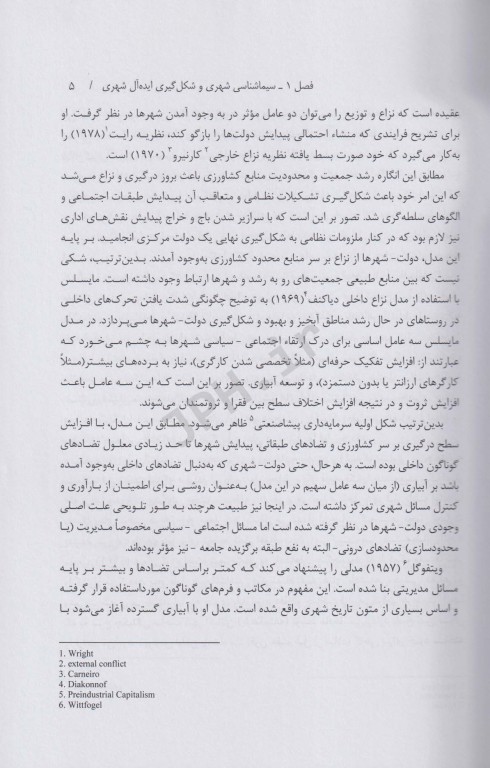 فصل ۱ ـ سیماشناسی شهری و شکل‌گیری ایده‌آل شهری / ۵
عقیده است که نزاع و توزیع را می‌توان دو عامل مؤثر در به وجود آمدن شهرها در نظر گرفت. او
برای تشریح فرایندی که منشاء احتمالی پیدایش دولت‌ها را بازگو کند، نظریه رایت۱ (۱۹۷۸) را
به‌کار می‌گیرد که خود صورت بسط یافته نظریه نزاع خارجی۲ کارنیرو۳ (۱۹۷۰) است.
مطابق این انگاره رشد جمعیت و محدودیت منابع کشاورزی باعث بروز درگیری و نزاع می‌شد
که این امر خود باعث شکل‌گیری تشکیلات نظامی و متعاقب آن پیدایش طبقات اجتماعی و
الگوهای سلطه‌گری شد. تصور بر این است که با سرازیر شدن باج و خراج پیدایش نقش‌های اداری
نیز لازم بود که در کنار ملزومات نظامی به شکل‌گیری نهایی یک دولت مرکزی انجامید. بر پایه
این مدل، دولت- شهرها از نزاع بر سر منابع محدود کشاورزی به‌وجود آمدند. بدین‌ترتیب، شکی
نیست که بین منابع طبیعی جمعیت‌های رو به رشد و شهرها ارتباط وجود داشته است. مایسلس
با استفاده از مدل نزاع داخلی دیاکنف۴ (۱۹۶۹) به توضیح چگونگی شدت یافتن تحرک‌های داخلی
در روستاهای در حال رشد مناطق آبخیز و بهبود و شکل‌گیری دولت- شهرها می‌پردازد. در مدل
مایسلس سه عامل اساسی برای درک ارتقاء اجتماعی - سیاسی شهرها به چشم می‌خورد که
عبارتند از: افزایش تفکیک حرفه‌ای (مثلاً تخصصی شدن کارگری)، نیاز به برده‌های بیشتر(مثلاً
کارگرهای ارزانتر یا بدون دستمزد)، و توسعه آبیاری. تصور بر این است که این سه عامل باعث
افزایش ثروت و در نتیجه افزایش اختلاف سطح بین فقرا و ثروتمندان می‌شوند.
بدین‌ترتیب شکل اولیه سرمایه‌داری پیشاصنعتی۵ ظاهر می‌شود. مطابق این مدل، با افزایش
سطح درگیری بر سر کشاورزی و تضادهای طبقاتی، پیدایش شهرها تا حد زیادی معلول تضادهای
گوناگون داخلی بوده است. به هرحال، حتی دولت- شهری که به‌دنبال تضادهای داخلی به‌وجود آمده
باشد بر آبیاری (از میان سه عامل سهیم در این مدل) به‌عنوان روشی برای اطمینان از بارآوری و
کنترل مسائل شهری تمرکز داشته است. در اینجا نیز طبیعت هرچند به طور تلویحی علت اصلی
وجودی دولت- شهرها در نظر گرفته شده است اما مسائل اجتماعی - سیاسی مخصوصاً مدیریت (یا
محدودسازی) تضادهای درونی- البته به نفع طبقه برگزیده جامعه - نیز مؤثر بوده‌اند.
ویتفوگل۶ (۱۹۵۷) مدلی را پیشنهاد می‌کند که کمتر براساس تضادها و بیشتر بر پایه
مسائل مدیریتی بنا شده است. این مفهوم در مکاتب و فرم‌های گوناگون مورداستفاده قرار گرفته
و اساس بسیاری از متون تاریخ شهری واقع شده است. مدل او با آبیاری گسترده آغاز می‌شود با
1. Wright
2. external conflict
3. Carneiro
4. Diakonnof
5. Preindustrial Capitalism
6. Wittfogel